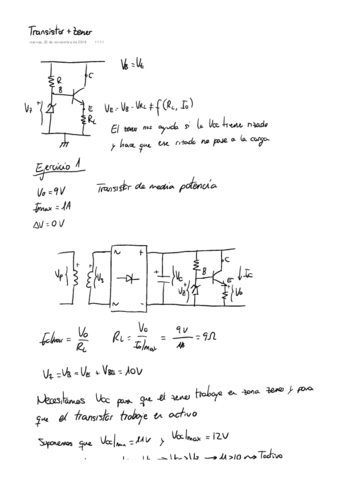 Transistor + zener
viernes, 30 de noviembre de 2018
R
B
C
E
R_L
V_B = V_Z
V_E = V_B - V_BE ≠ f(R_L, I_o)
El zener nos ayuda si la Vcc tiene rizado
y hace que ese rizado no pase a la carga
Ejercicio 1
V_o = 9V
I_max = 1A
ΔV = 0V
Transistor de media potencia
V_P
V_S
V_C
R
B
C
E
V_Z
V_o
I_o|max = V_o / R_L
R_L = V_o / I_o|max = 9V / 1A = 9Ω
V_Z = V_B = V_E + V_BE = 10V
Necesitamos Vcc para que el zener trabaje en zona zener y para
que el transistor trabaje en activo
Suponemos que Vcc|min = 11V y Vcc|max = 12V
11>10 → T activo